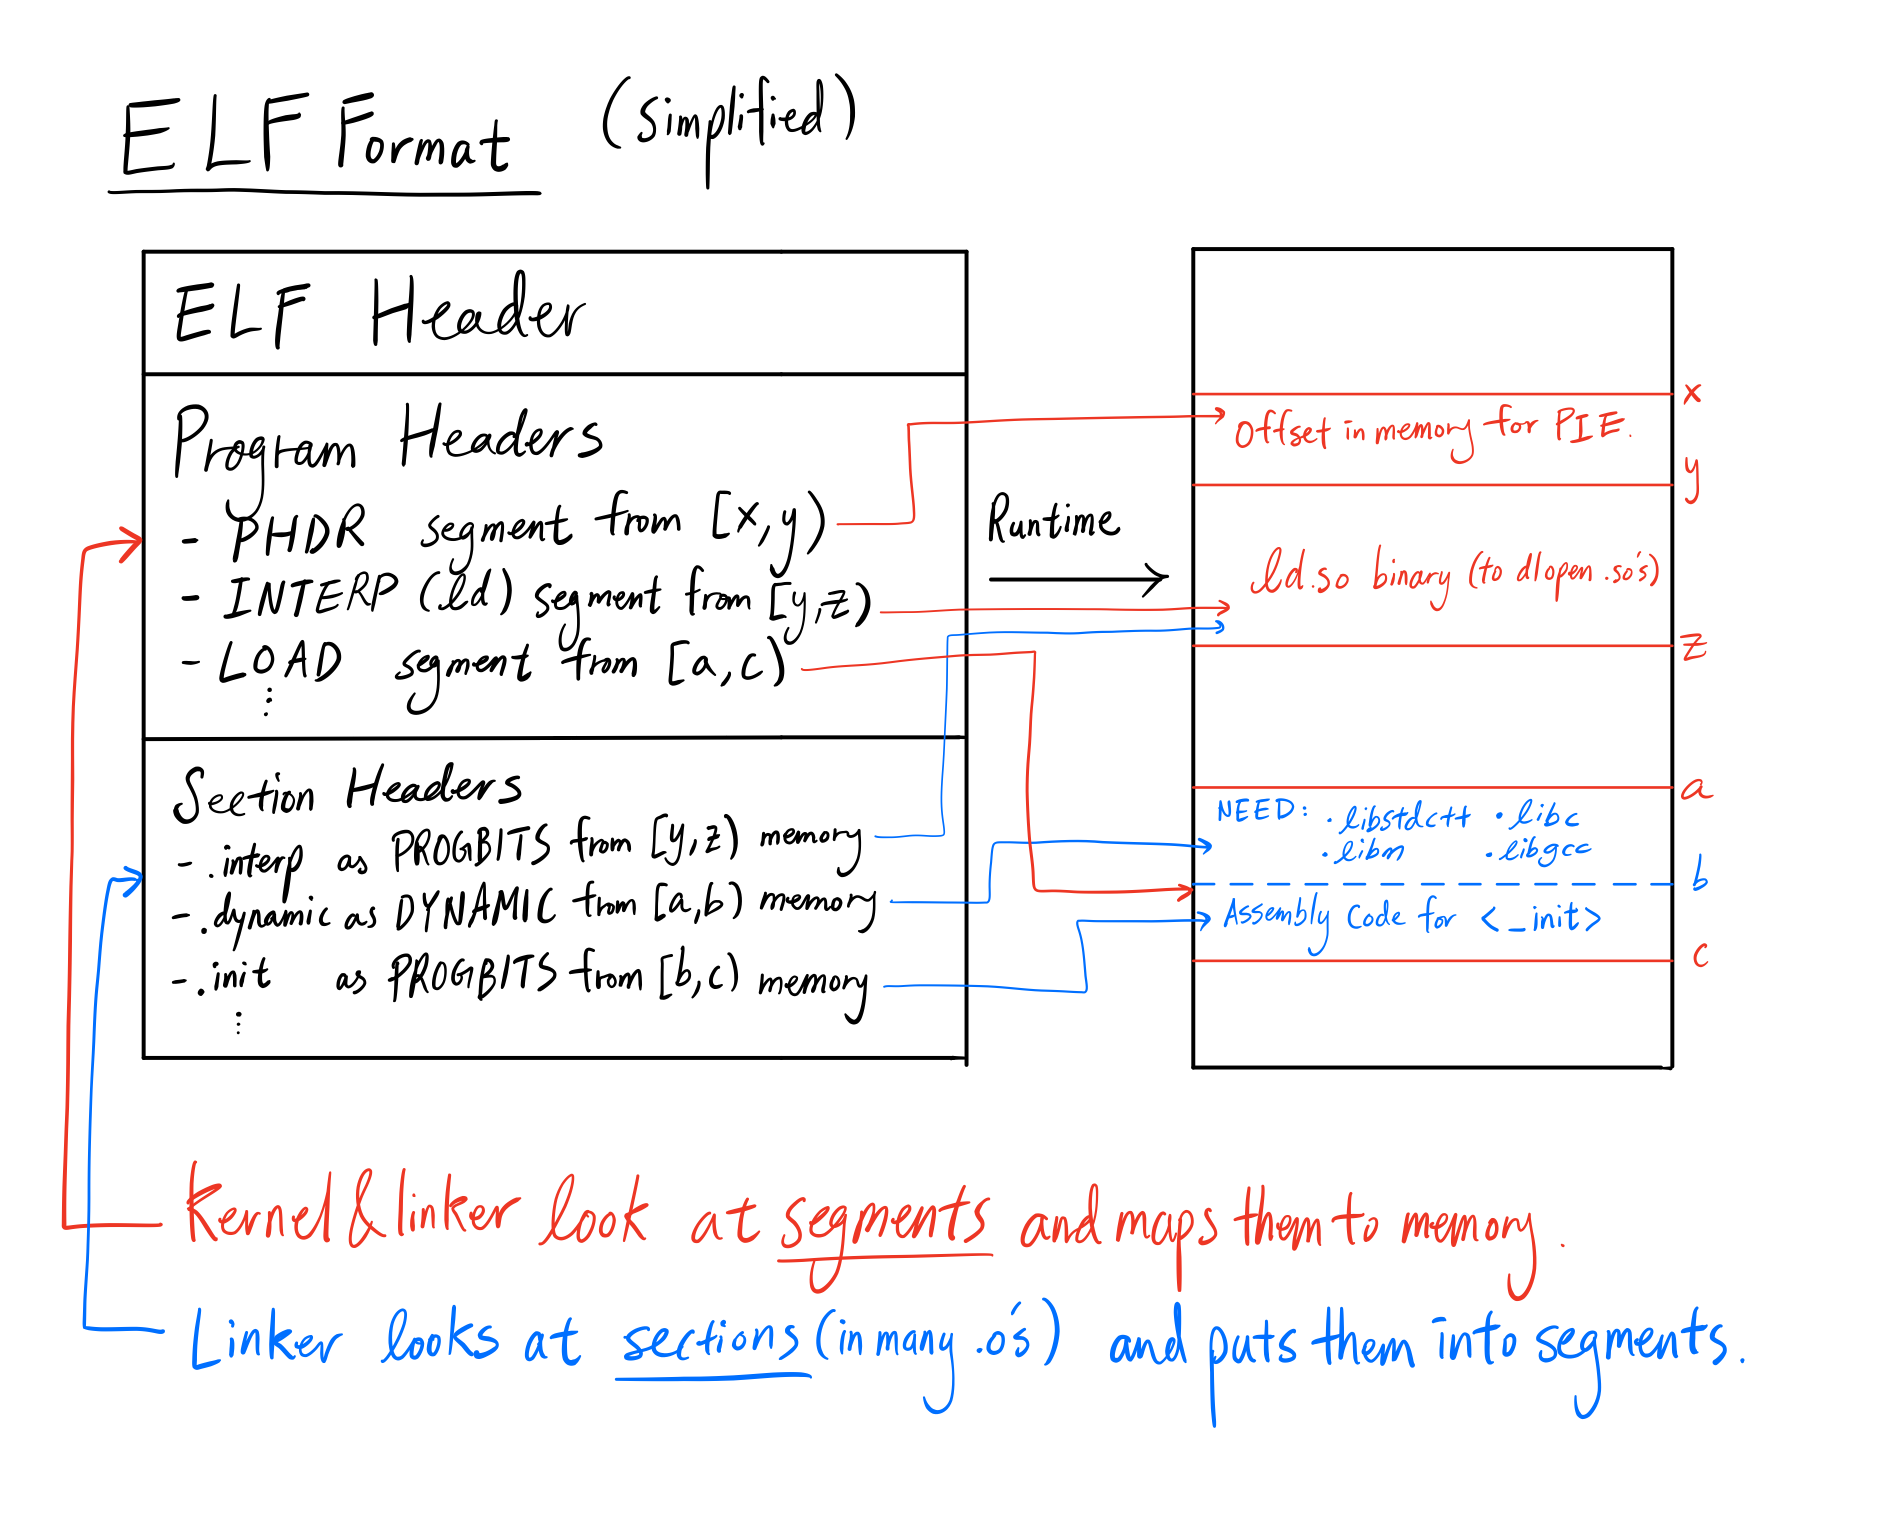 ELF Format (simplified)
ELF Header
Program Headers
- PHDR segment from [x,y)
- INTERP (ld) segment from [y,z)
- LOAD segment from [a,c)
⋮
Section Headers
- .interp as PROGBITS from [y,z) memory
- .dynamic as DYNAMIC from [a,b) memory
- .init as PROGBITS from [b,c) memory
⋮
Runtime
x
Offset in memory for PIE.
y
ld.so binary (to dlopen .so's)
z
a
NEED: · libstdc++ · libc
· libm · libgcc
b
Assembly Code for <_init>
c
Kernel & linker look at segments and maps them to memory.
Linker looks at sections (in many .o's) and puts them into segments.